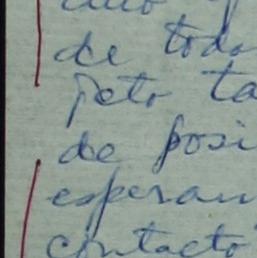 de todo
peto ta
de posi
esperan
contacto